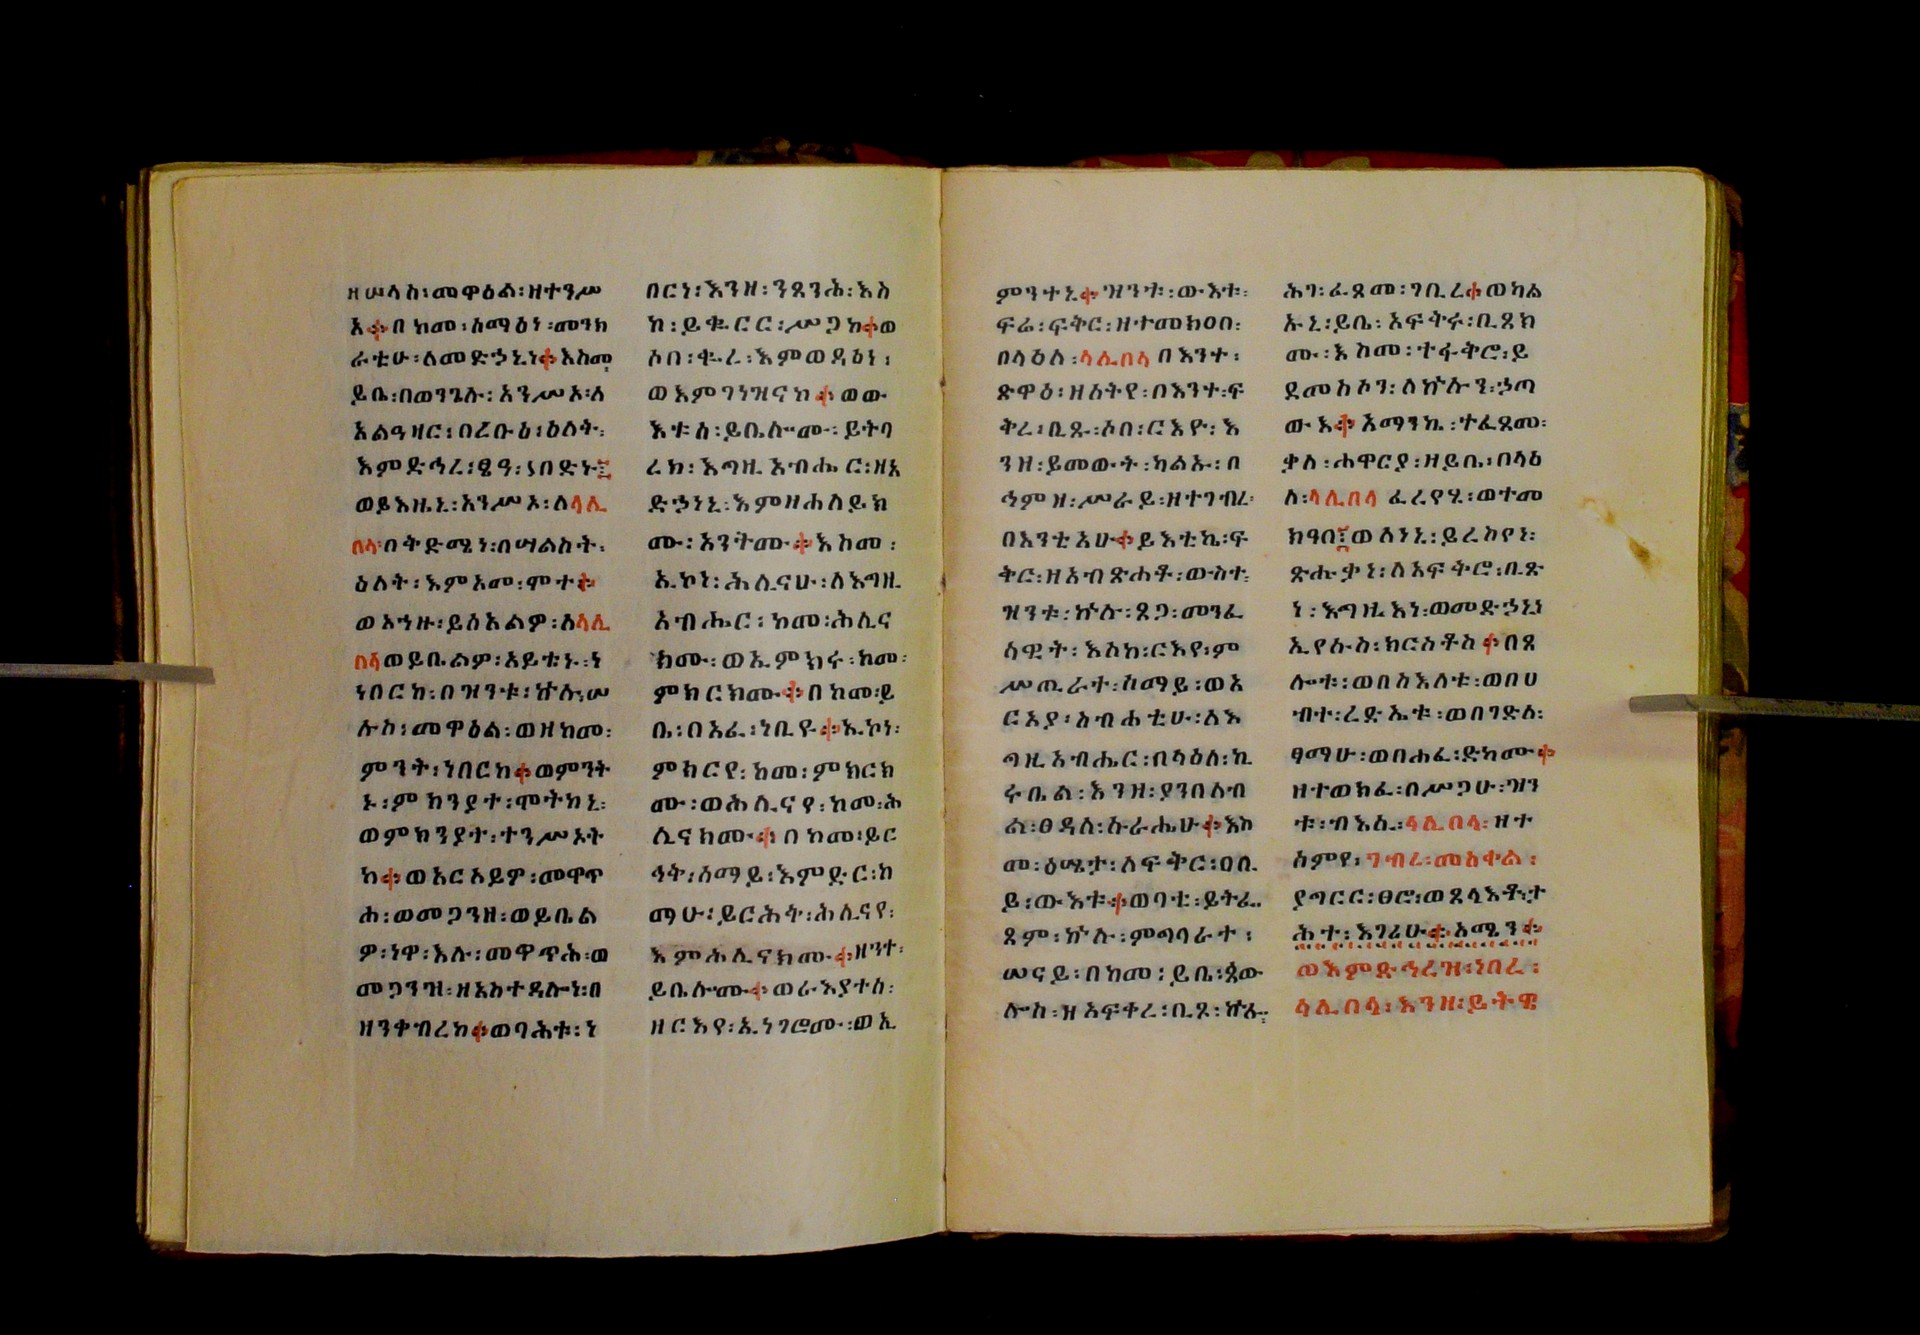 ዘሠላስ፡መዋዕል፡ዘተንሥ
አ።በከመ፡ስማዕነ፡መንክ
ራቲሁ፡ለመድኃኒነ።እስመ
ይቤ፡በወንጌሉ፡አንሥኦ፡ለ
አልዓዛር፡በረቡዕ፡ዕለት፡
እምድኅረ፡ፄዓ፡ነበድኑ፤
ወይእዜኒ፡አንሥኦ፡ለላሊ
በላ፡በትድሜነ፡በሣልስት፡
ዕለት፡እምአመ፡ሞተ።
ወአኀዙ፡ይስአልዎ፡ለላሊ
በላ፡ወይቤልዎ፡አይቴኑ፡ነ
ነበርከ፡በዝንቱ፡ኵሉ፡ሠ
ሉስ፡መዋዕል፡ወዘከመ፡
ምንት፡ነበርከ።ወምንት
ኑ፡ምክንያተ፡ሞትከኒ፡
ወምክንያተ፡ተንሥኦት
ከ።ወአርአይዎ፡መዋጥ
ሕ፡ወመጋንዘ፡ወይቤል
ዎ፡ነዋ፡እሉ፡መዋጥሕ፡ወ
መጋንዝ፡ዘአስተዳሎነ፡በ
ዘንቀብረከ።ወባሕቱ፡ነ
በርነ፡እንዘ፡ንጸንሕ፡እስ
ከ፡ይቈርር፡ሥጋከ።ወ
ሶበ፡ቈረ፡እምወዳዕነ፡
ወእምገነዝናከ።ወው
እቱሰ፡ይቤሎሙ፡ይትባ
ረክ፡እግዚአብሔር፡ዘአ
ድኃነነኒ፡እምዘሐለይክ
ሙ፡አንትሙ።እስመ፡
ኢኮነ፡ሕሊናሁ፡ለእግዚ
አብሔር፡ከመ፡ሕሊና
ክሙ፡ወኢምክሩ፡ከመ፡
ምክርክሙ።በከመ፡ይ
ቤ፡በአፈ፡ነቢይ።ኢኮነ፡
ምክርየ፡ከመ፡ምክርክ
ሙ፡ወሕሊናየ፡ከመ፡ሕ
ሊናክሙ።በከመ፡ይር
ኅት፡ሰማይ፡እምድር፡ከ
ማሁ፡ይርሕት፡ሕሊናየ፡
እምሕሊናክሙ።ዘንተ፡
ይቤሎሙ።ወራእያተሰ፡
ዘርእየ፡ኢነገሮሙ፡ወኢ
ምንተኒ።ዝንቱ፡ውእቱ፡
ፍሬ፡ፍቅር፡ዘተመክዐበ፡
በላዕለ፡ላሊበላ፡በእንተ፡
ጽዋዕ፡ዘሰትየ፡በእንተ፡ፍ
ቅረ፡ቢጹ፡ሶበ፡ርእዮ፡እ
ንዘ፡ይመውት፡ካልኡ፡በ
ኅምዘ፡ሥራይ፡ዘተገብረ፡
በእንቲአሁ።ይእቲኬ፡ፍ
ቅር፡ዘአብጽሐቶ፡ውስተ፡
ዝንቱ፡ኵሉ፡ጸጋ፡መንፈ
ሳዊት፡እስከ፡ርእየ፡ም
ሥጢራተ፡ሰማይ፡ወአ
ርአያ፡ስብሐቲሁ፡ለእ
ግዚአብሔር፡በላዕለ፡ኪ
ሩቤል፡እንዘ፡ያንበሰብ
ል፡ፀዳለ፡ስራሔሁ።እስ
መ፡ዕሤታ፡ለፍቅር፡ዐቢ
ይ፡ውእቱ።ወባቲ፡ይትፌ
ጸም፡ኵሉ፡ምግባራት፡
ሠናይ፡በከመ፡ይቤ፡ጳው
ሎስ፡ዘአፍቀረ፡ቢጾ፡ኵሎ፡
ሕገ፡ፈጸመ፡ገቢረ።ወካል
ኡኒ፡ይቤ፡አፍቅሩ፡ቢጸክ
ሙ፡እስመ፡ተፋቅሮ፡ይ
ደመስሶን፡ለኵሉን፡ኃጣ
ውእ።አማንኬ፡ተፈጸመ፡
ቃለ፡ሐዋርያ፡ዘይቤ፡በላዕ
ለ፡ላሊበላ፡ፈረየሂ፡ወተመ
ክዓበ፤ወለነኒ፡ይረስየነ፡
ጽሑቃነ፡ለአፍቅሮ፡ቢጽ
ነ፡እግዚእነ፡ወመድኃኒነ
ኢየሱስ፡ክርስቶስ።በጸ
ሎቱ፡ወበስእለቱ፡ወበሀ
ብተ፡ረድኤቱ፡ወበገድለ፡
ፃማሁ፡ወበሐፈ፡ድካሙ።
ዘተወክፈ፡በሥጋሁ፡ዝን
ቱ፡ብእሲ፡ላሊበላ፡ዘተ
ሰምየ፡ገብረ፡መስቀል፡
ያግርር፡ፀሮ፡ወጸላእቶ፡ታ
ሕተ፡እገሪሁ።አሜን።
ወእምድኅረዝ፡ነበረ፡
ላሊበላ፡እንዘ፡ይትዌ